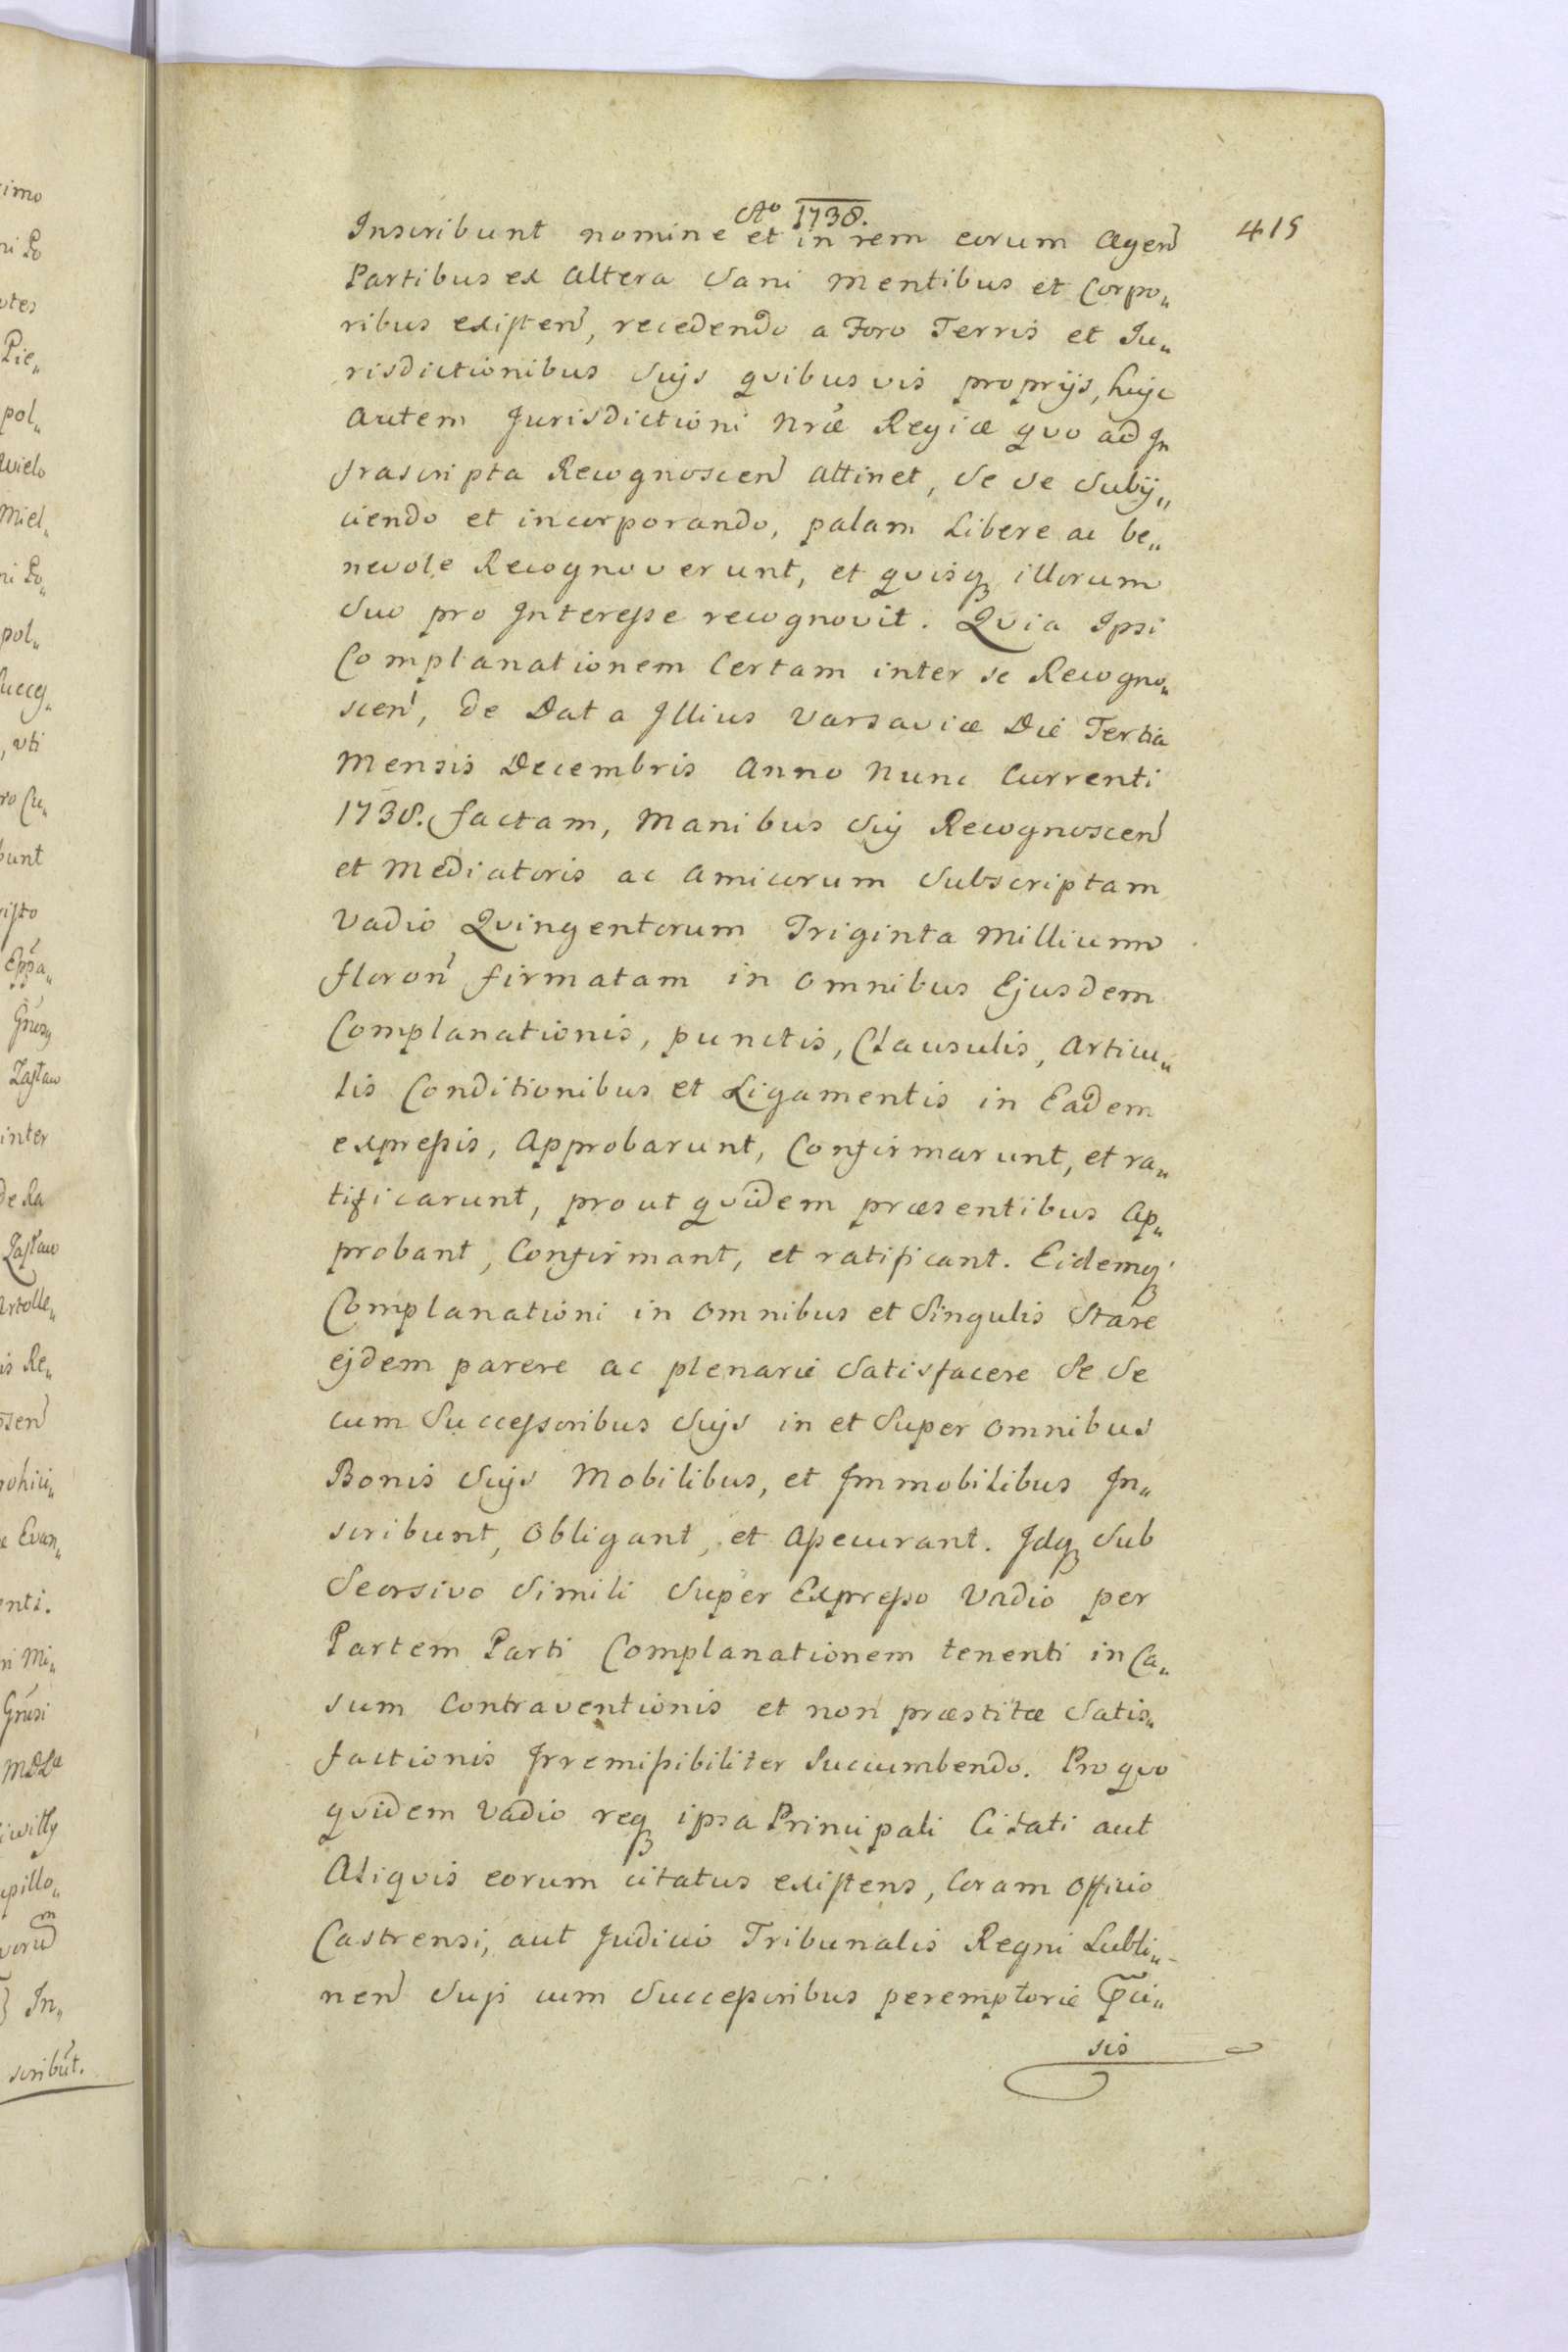 Ao 1738.
415
Inscribunt nomine et in rem eorum Agen
Partibus ex Altera Sani Mentibus et Corpo„
ribus existen, recedendo a Foro Terris et Ju„
risdictionibus Suijs quibusvis proprijs, huic
Autem Jurisdictioni Nræ Regiæ quo ad In
frascripta Recognoscen Attinet, Se Se Subij„
ciendo et incorporando, palam Libere ac be„
nevole Recognoverunt, et quisq illorum
Suo pro Interesse recognovit. Quia Ipsi
Complanationem Certam inter se Recogno„
scen, de Data Illius Varsaviæ Die Tertia
Mensis Decembris Anno Nunc Currenti
1738. factam, Manibus Suij Recognoscen
et Mediatoris ac Amicorum Subscriptam
Vadio Quingentorum Triginta Millium
floron firmatam in omnibus Ejusdem
Complanationis, punctis, Clausulis, Articu„
lis Conditionibus et Ligamentis in Eadem
expressis, Approbarunt, Confirmarunt, et ra„
tificarunt, prout quidem præsentibus Ap„
probant, Confirmant, et ratificant. Eidemq
Complanationi in omnibus et Singulis Stare
ejdem parere ac plenarie Satisfacere Se Se
cum Successoribus Suijs in et Super omnibus
Bonis Suijs Mobilibus, et Immobilibus In„
scribunt, Obligant, et Assecurant. Idq Sub
Seorsivo Simili Super Expresso Vadio per
Partem Parti Complanationem tenenti in Ca„
sum Contraventionis et non præstitæ Satis„
factionis Irremissibiliter Succumbendo. Pro quo
quidem Vadio req ipsa Principali Citati aut
Aliquis eorum citatus existens, Coram Officio
Castrensi, aut Judicio Tribunalis Regni Lubli„
nen Suji cum Successoribus peremptorie
sis
imo
Pie„
pol„
Miel„
pol„
uti
bunt
Zasław
inter
de Ra
Zasław
is Re„
Evan„
In„
scribut.